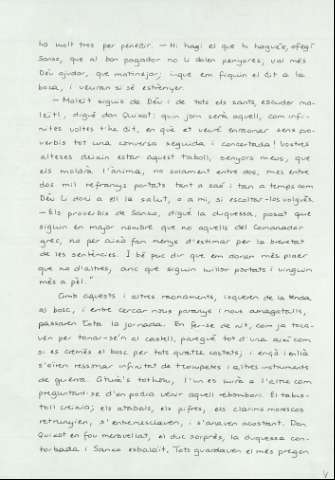 ho molt tres per penedir. — Hi hagi el que hi hagués, afegí
Sanxo, que al bon pagador no li dolen penyores; val més
Déu ajudar, que matinejar; i que em fiquin el dit a la
boca, i veuran si sé estrènyer.
— Maleït siguis de Déu i de tots els sants, escuder ma-
leït!, digué don Quixot: quin jorn serà aquell, com infi-
nites voltes t'he dit, en què et veuré enraonar sens pro-
verbis tot una conversa seguida i concertada! Vostres
alteses deixin estar aquest taboll, senyors meus, que
els moldrà l'ànima, no solament entre dos, mes entre
dos mil refranys portats tant a saó i tan a temps com
Déu li doni a ell la salut, o a mi, si escoltar-los volgués.
— Els proverbis de Sanxo, digué la duquessa, posat que
siguin en major nombre que no aquells del Comanador
grec, no per això fan menys d'estimar per la brevetat
de les sentències. I bé puc dir que em donen més plaer
que no d'altres, anc que siguin millor portats i vinguin
més a pèl."
Amb aquests i altres raonaments, isqueren de la tenda
al bosc, i entre cercar nous paranys i nous amagatalls,
passaren tota la jornada. En fer-se de nit, com ja troca-
ven per tornar-se'n al castell, paregué tot d'una així com
si es cremés el bosc per tots quatre costats; i ençà i enllà
s'oïren ressonar infinitat de trompetes i altres instruments
de guerra. Aturà's tothom, l'un es mirà a l'altre com
preguntant-se d'on podia venir aquell rebombori. El tabus-
toll creixia; els atabals, els pifres, els clarins moriscos
retrunyien, s'entremesclaven, i s'anaven acostant. Don
Quixot en fou meravellat, el duc sorprès, la duquessa con-
torbada i Sanxo esbalaït. Tots guardaven el més pregon